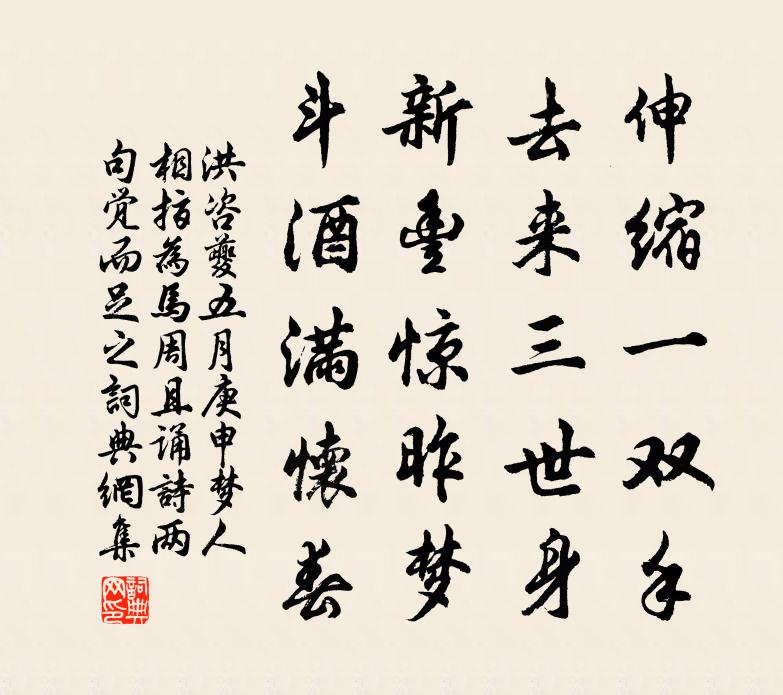 伸缩一双手
去来三世身
新豊惊昨梦
斗酒满懷春
洪咨夔五月庚申梦人
相指為馬周且诵詩两
句觉而足之詞典網集
詞典网印